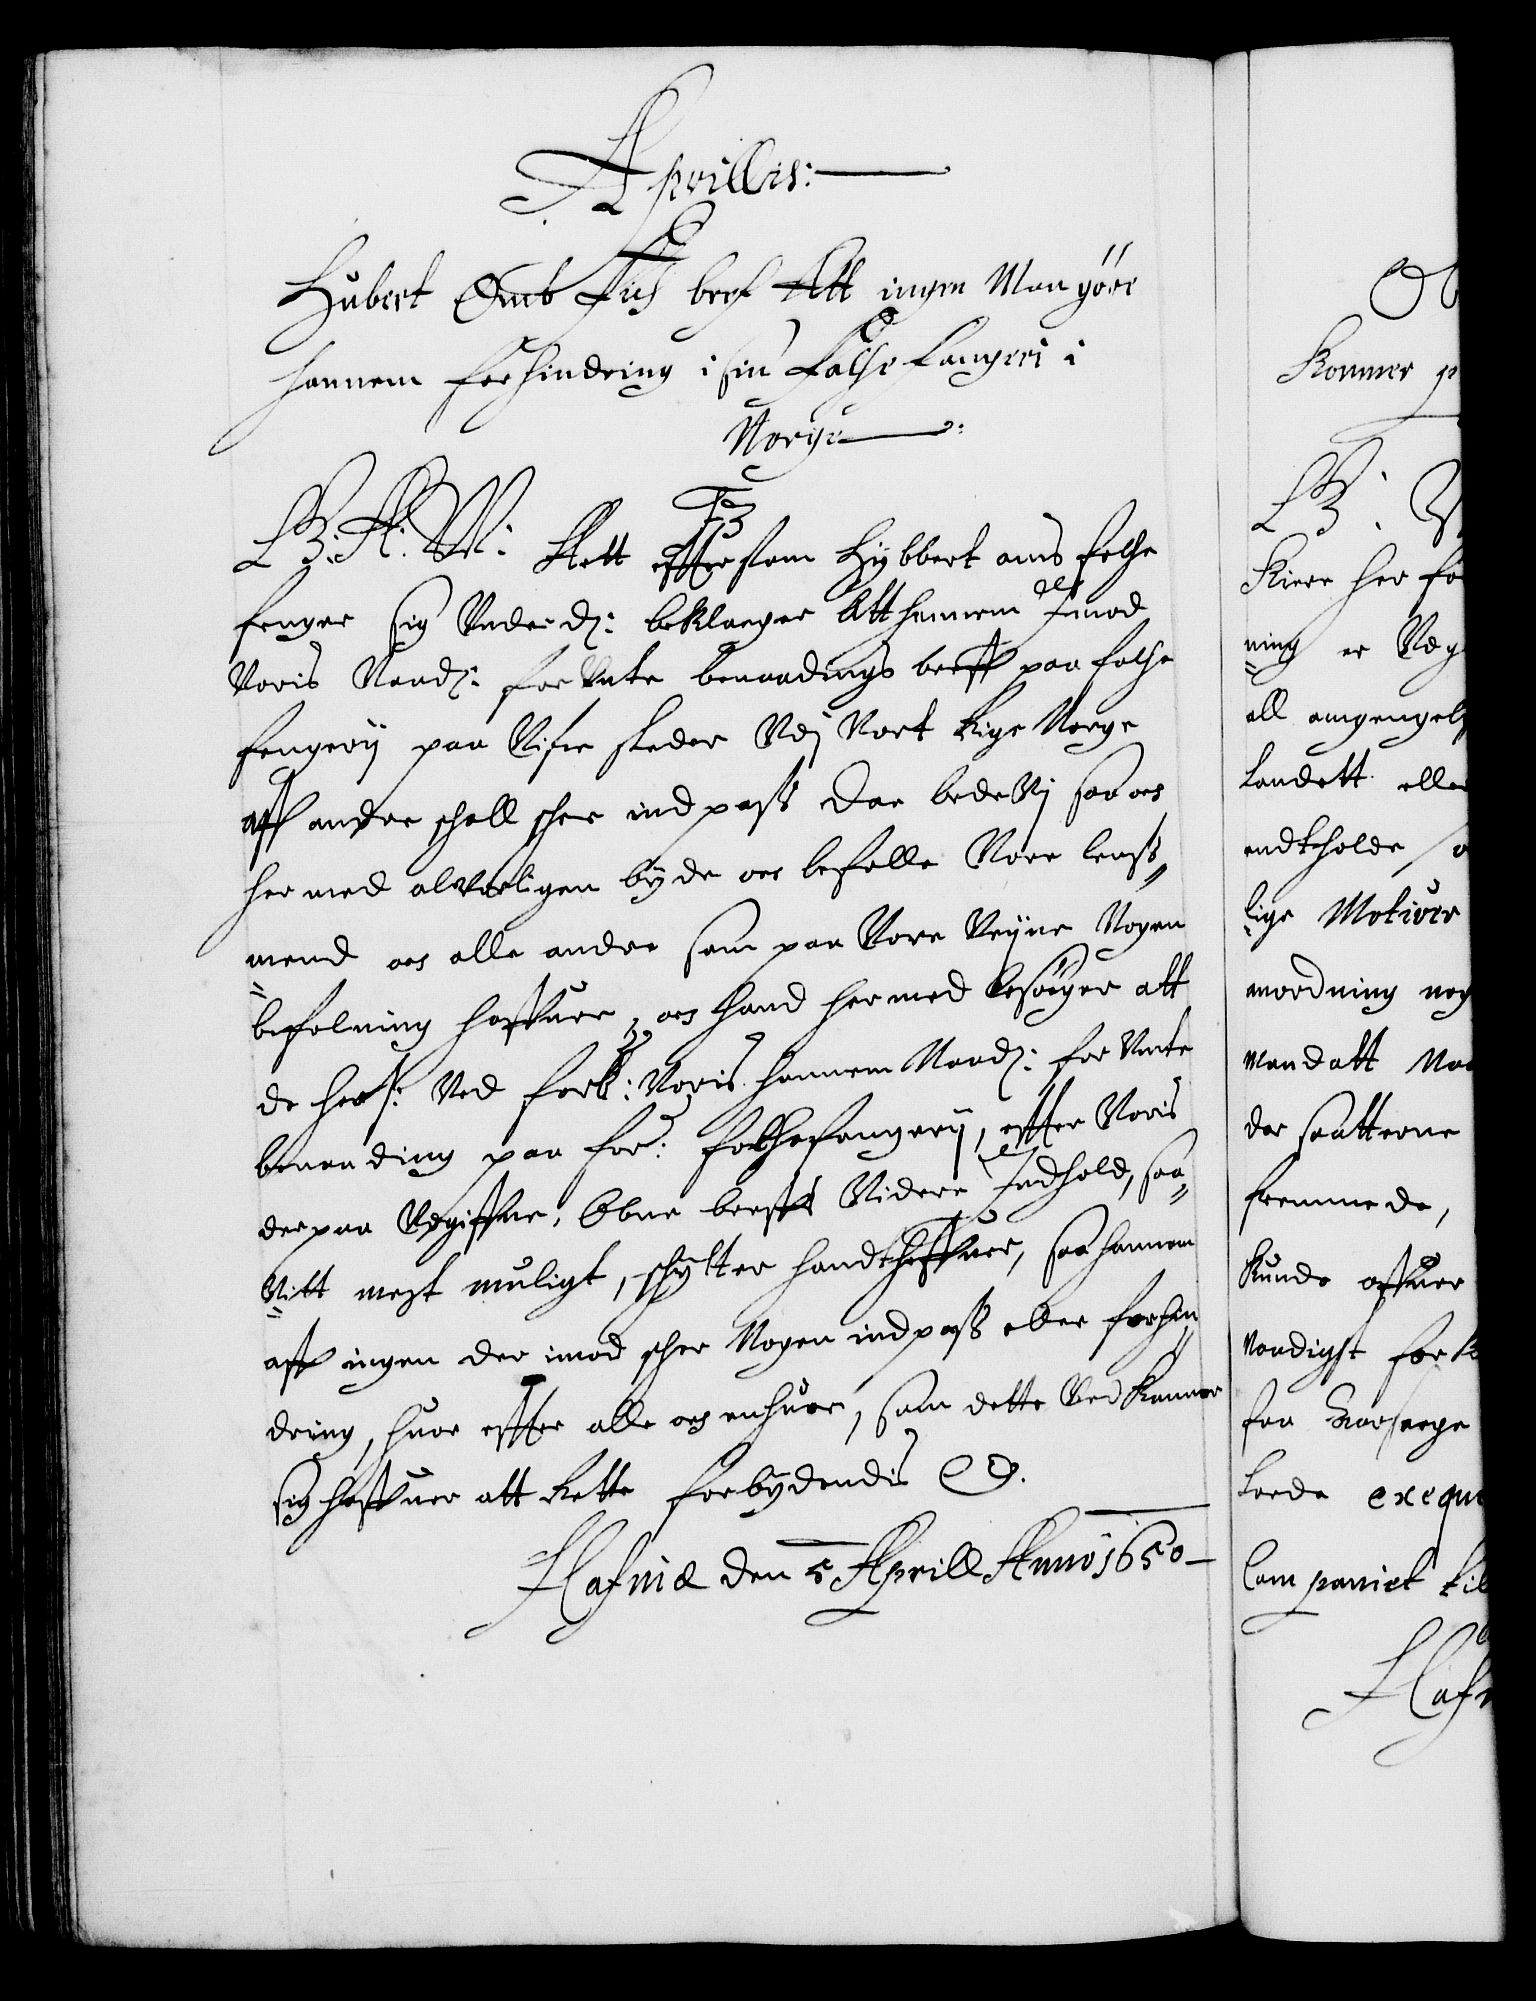 Aprillis:
Hubert Oms Fich bref Att ingen Maa giøre
hannem forhindring i sin falche fangeri i
Norge
G: A: W: Att effterssom Hybbert oms felche
fenger sig Underd: beklager Att hannem Imod
Voris Naad: for Unte benaadings breff paa falche
fengerij paa Visse steder Udj Vort Rige Norge
aff andre schall schee indpass Daa bede Vj saa oc
her med alvorligen byde oc befalle Vore lenss-
mend oc alle andre som paa Vore Veyne Nogen
befalning haffuer, oc hand her med besøger att
de her: Ved forb: Voris hannem Naad: for Unte
benaading paa for: falchefangerij, effter Voris
derpaa Udgiffne, Obne breffs Videre Indhold, saa-
Vitt mest muligt, schytter handtheffuer, saa hannem
aff ingen der imod scher Nogen indpass eller forhin-
dring, huor effter alle oc enhuer, som dette Ved kommer
sig haffuer att Rette forbydendis
Hafniæ den 5 Aprill Anno 1650
Kommer
Kiere her
ning er
all
Landett eller
endtholde
lige Motiver
anordning
Mandatt
der saatterne
fremmede,
kunde offuer
Naadigst
fra
exeque
Compagniet til
Hafn